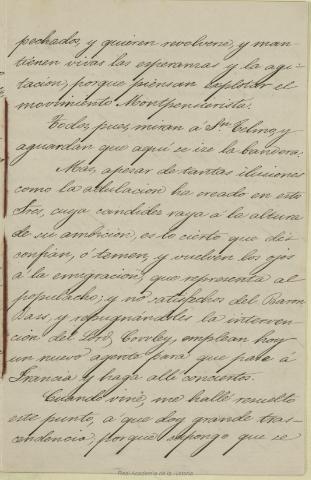 pechados, y quieren revolverse, y man-
tienen vivas las esperanzas y la agi-
tacion, porque piensan explotar el
movimiento Montpensierista.
Todos, pues, miran á Sn Telmo, y
aguardan que aqui se ize la bandera.
Mas, apesar de tantas ilusiones
como la adulacion ha creado en estos
Sres, cuya candidez raya á la altura
de su ambicion, es lo cierto que des-
confian, ó temen, y vuelven los ojos
á la emigracion, que representa al
populacho; y no satisfechos del Baron
y repugnándoles la interven-
cion del Lord Cowley, emplean hoy
un nuevo agente para que pase á
Francia y haga alli conciertos.
Cuando vine, me hallé resuelto
este punto, á que doy grande tras-
cendencia, porque supongo que se
Real Academia de la Historia